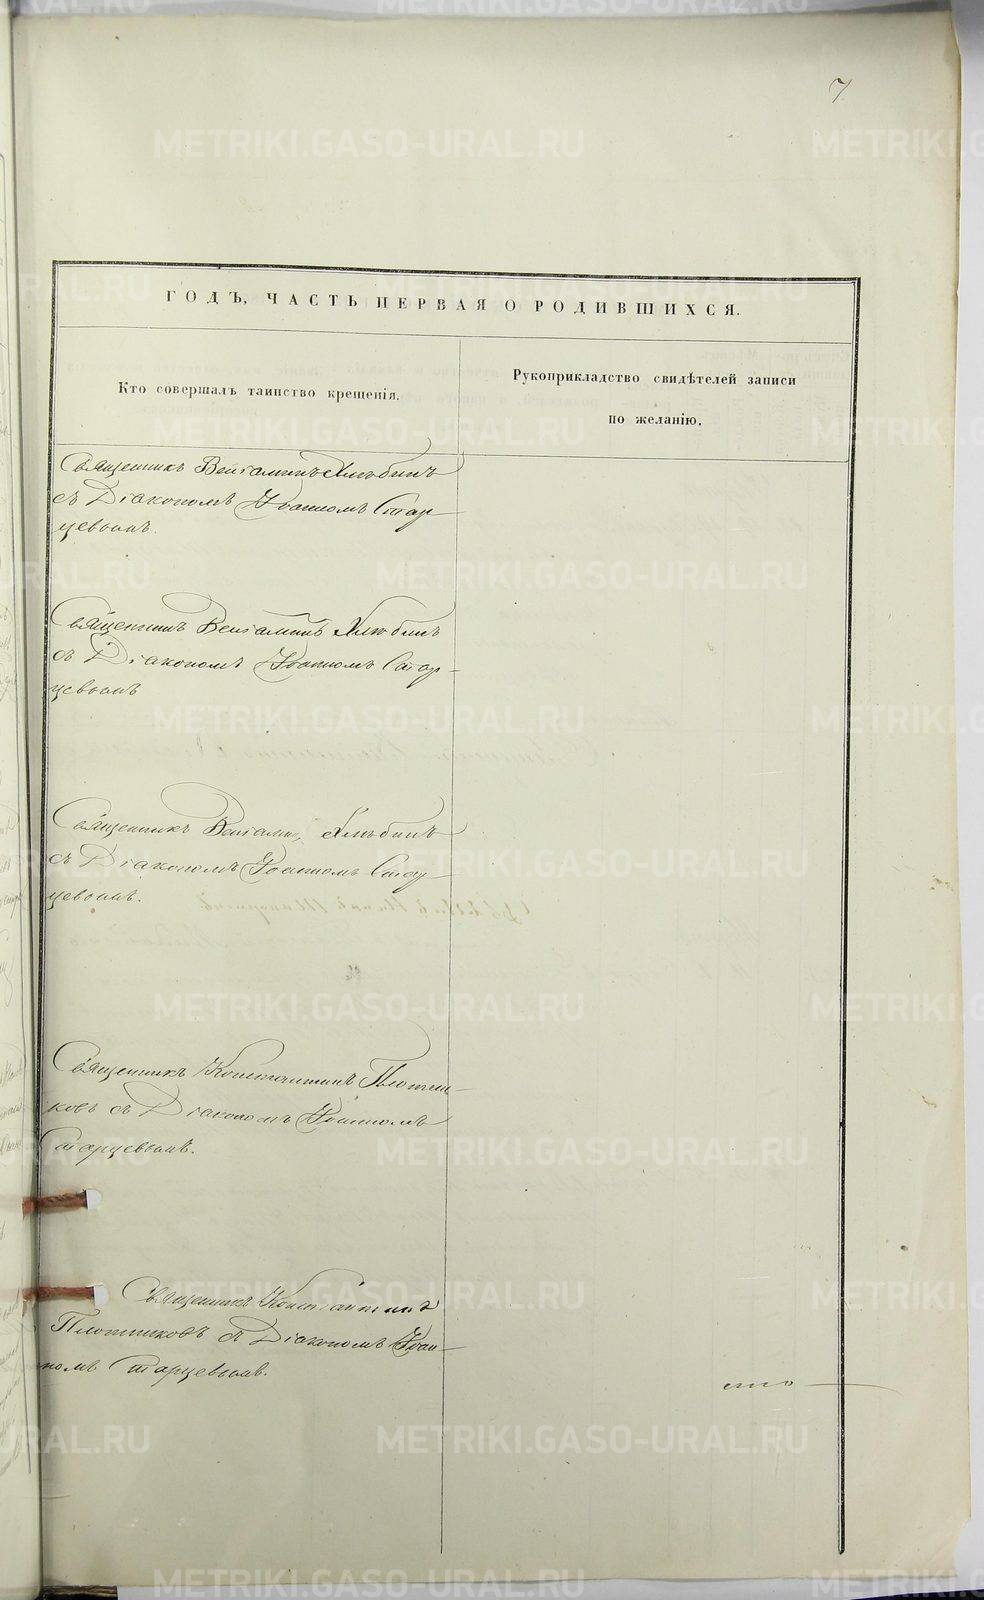 7
ГОДЪ, ЧАСТЬ ПЕРВАЯ О РОДИВШИХСЯ.
Кто совершалъ таинство крещенія.
Рукоприкладство свидѣтелей записи
по желанію.
Священникъ Веніаминъ Хлѣбинъ
съ Діакономъ Іоанномъ Стар-
цевымъ.
Священникъ Веніаминъ Хлѣбинъ
съ Діакономъ Іоанномъ Стар-
цевымъ
Священникъ Веніаминъ Хлѣбинъ
съ Діакономъ Іоанномъ Стар-
цевымъ.
Священникъ Константинъ Плотни-
ковъ съ Діакономъ Іоанномъ
Старцевымъ.
Священникъ Константинъ
Плотниковъ съ Діакономъ Іоан-
номъ Старцевымъ.
METRIKI.GASO-URAL.RU